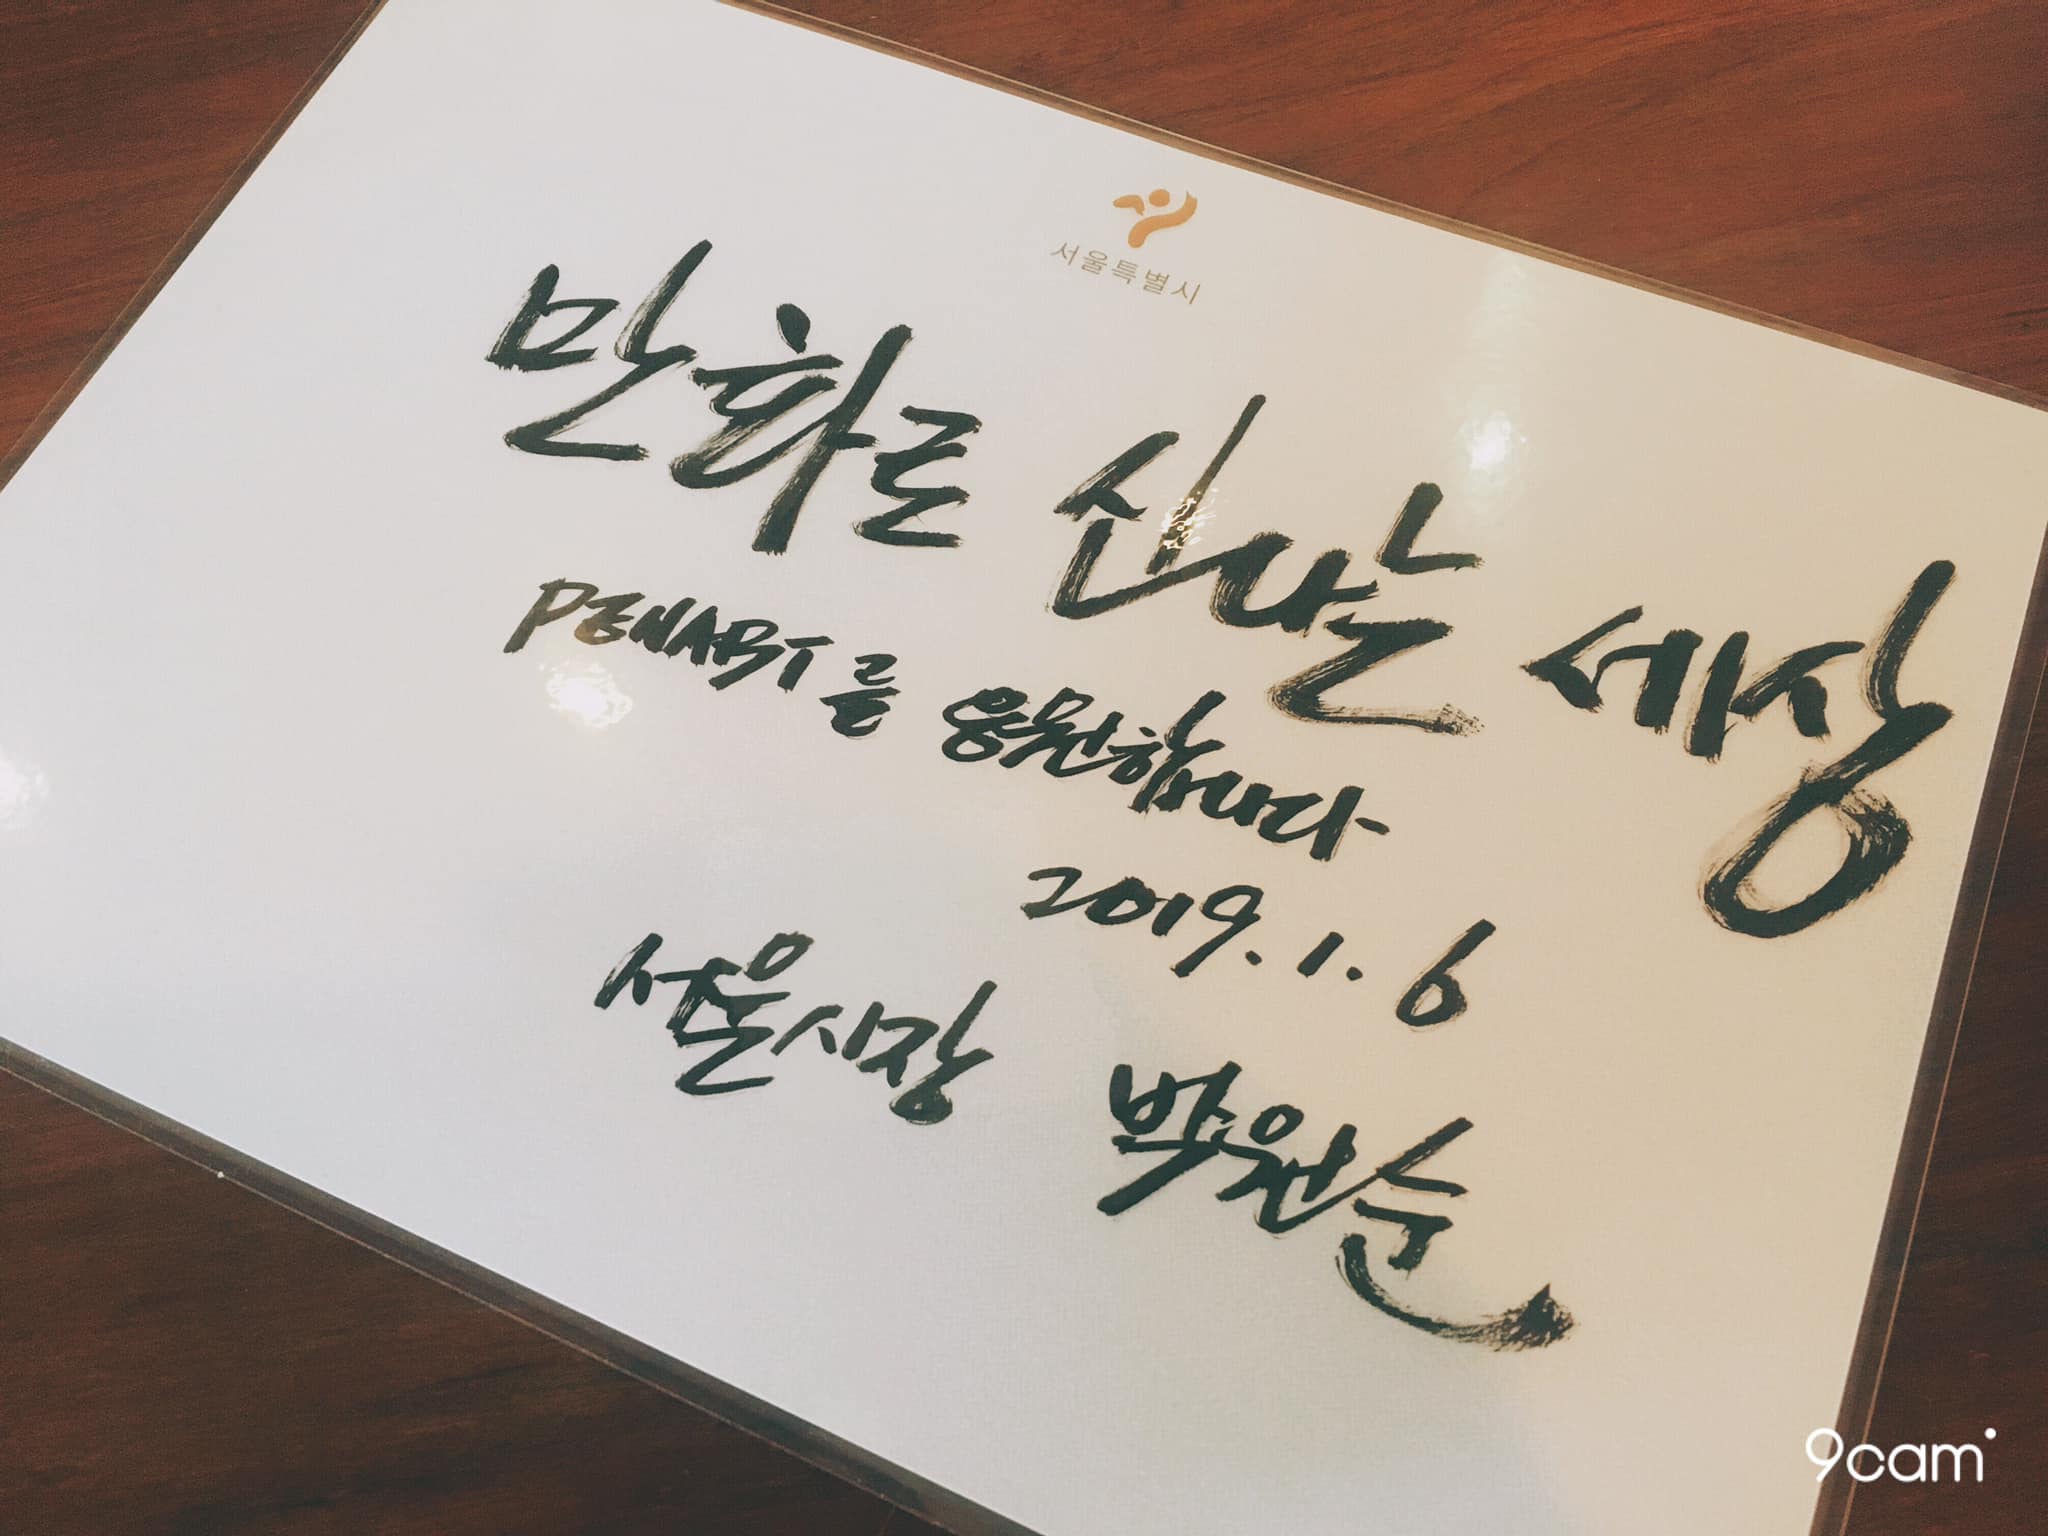 서울특별시
만화로 신나는 세상
PENART를 응원합니다
2019. 1. 6
서울시장 박원순
9cam